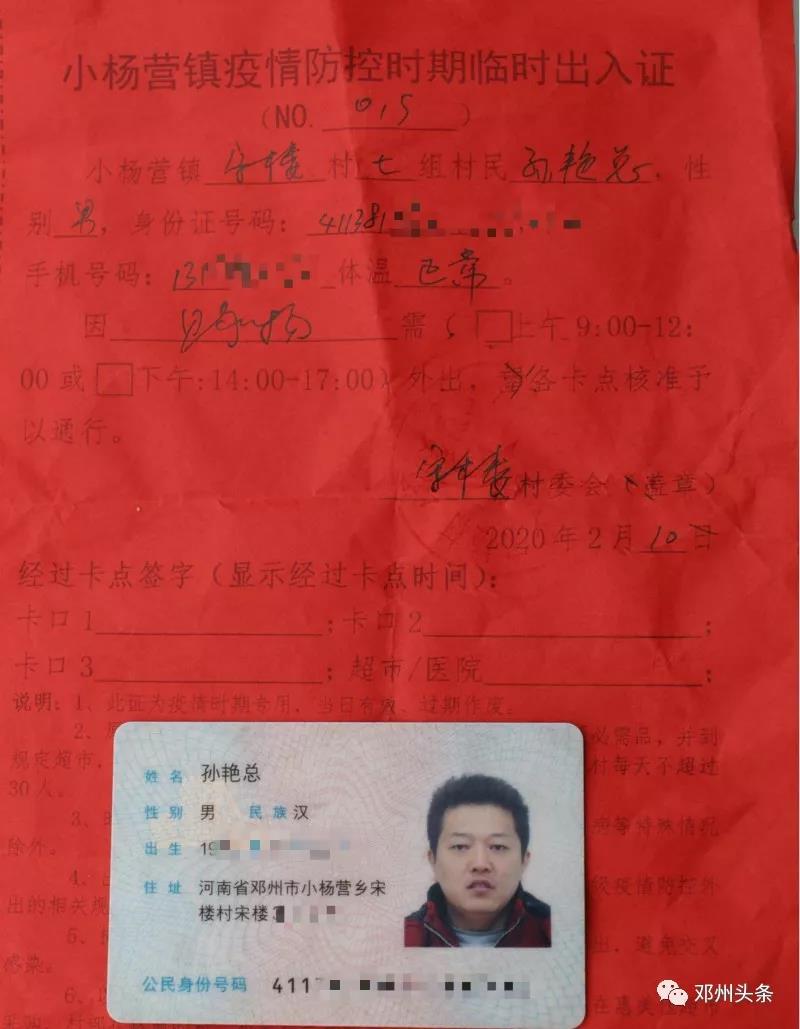 小杨营镇疫情防控时期临时出入证
(NO. 015)
小杨营镇宋楼村七组村民孙艳总，性
别男，身份证号码：411381
手机号码：131 体温正常。
因 需（□上午9:00-12:
00或□下午:14:00-17:00）外出，望各卡点核准予
以通行。
宋楼村委会（盖章）
2020年2月10日
经过卡点签字（显示经过卡点时间）：
卡口1 ；卡口2 ；
卡口3 ；超市/医院 ；
说明：1、此证为疫情时期专用，当日有效、过期作废。
2、 必需品，并到
规定超市， 村每天不超过
30人。
3、 病等特殊情况
除外。
4、 级疫情防控外
出的相关规
5、 出，避免交叉
感染。
6、
姓名 孙艳总
性别 男 民族 汉
出生 19
住址 河南省邓州市小杨营乡宋
楼村宋楼
公民身份号码 411
邓州头条